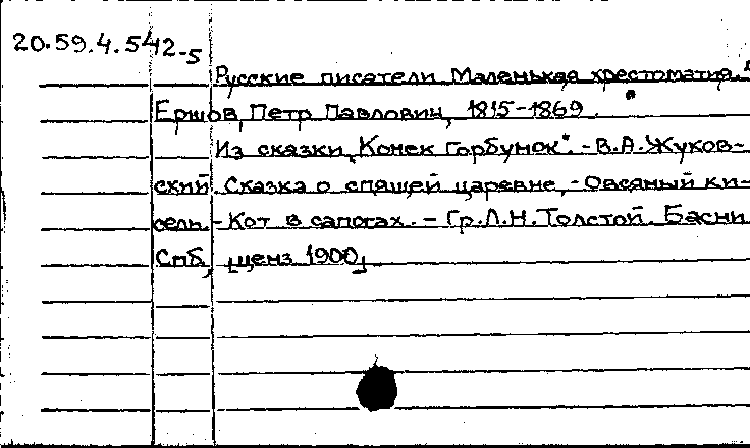 20.59.4.542-5
Русские писатели Маленькая хрестоматия.
Ершов, Петр Павлович, 1815-1869.
Из сказки „Конек Горбунок". - В.А. Жуков-
ский. Сказка о спящей царевне, - Овсяный ки-
сель. - Кот в сапогах. - Гр. Л.Н. Толстой. Басни
Спб, [ценз 1900]